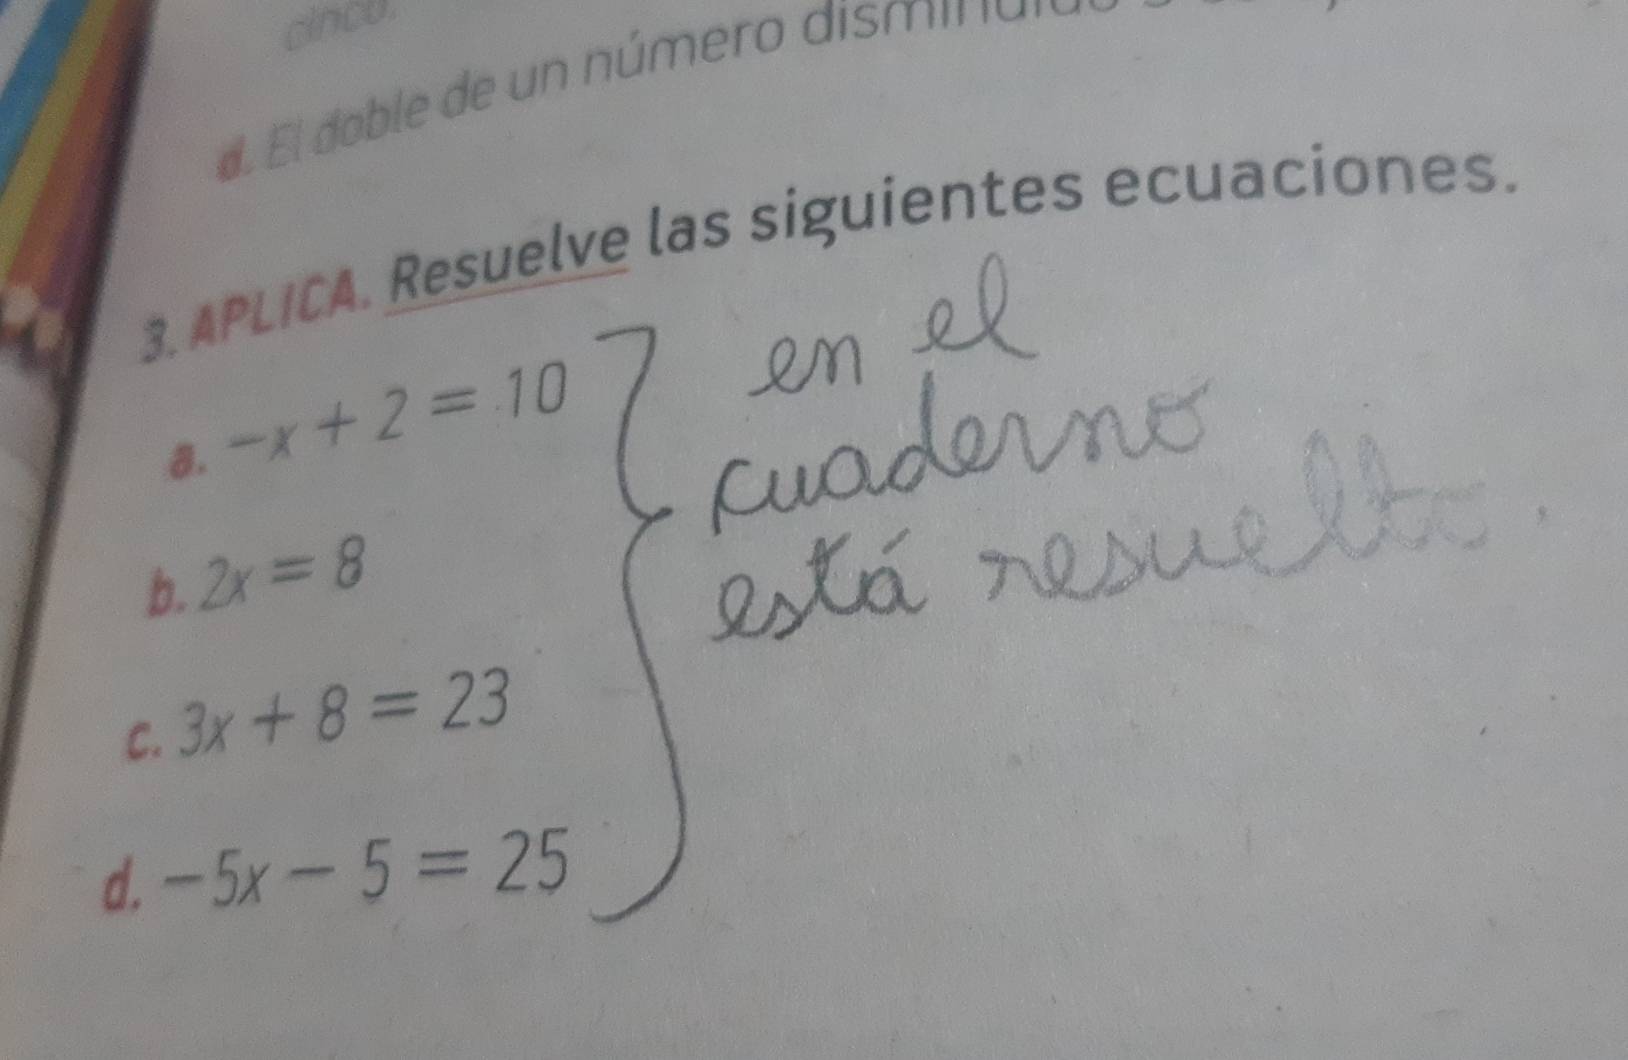 cinco.
d. El doble de un número
3. APLICA. Resuelve las siguientes ecuaciones.
a. -x + 2 = 10
b. 2x = 8
c. 3x + 8 = 23
d. -5x - 5 = 25
en el
cuaderno
está resuelto.